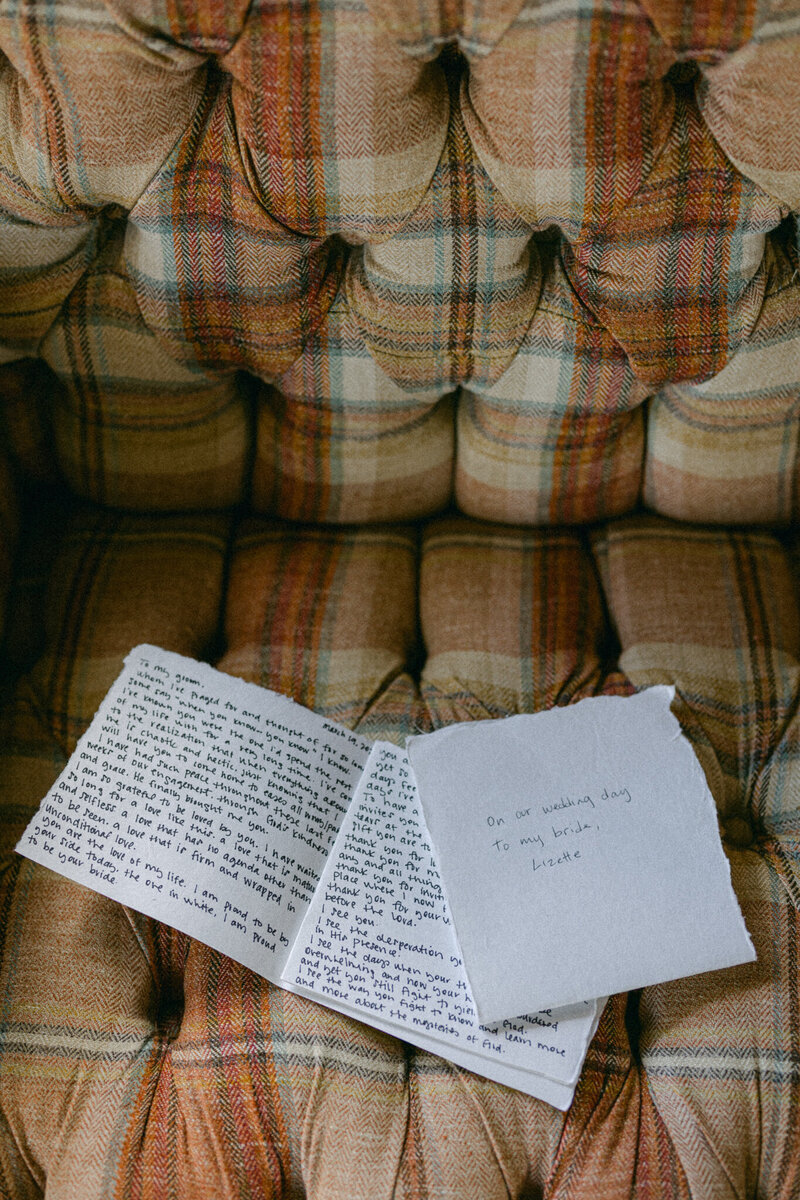 To my groom,
March 26, 20
whom I've prayed for and thought of for so long
some say "when you know- you know". I knew
I've known you were the one I'd spend the rest
of my life with for a very long time. I've come
to the realization that when everything around
me is chaotic and hectic, just knowing that I
will have you to come home to eases all
I have had such peace throughout these last
weeks of our engagement. through God's kindness
and grace. He finally brought me you.
I am so grateful to be loved by you. I have waited
so long for a love like this. a love that is mature
and selfless a love that has no agenda other than
to be seen. a love that is firm and wrapped in
unconditional love.
you are the love of my life. I am proud to be by
your side today, the one in white, I am proud
to be your bride.
you
yet so
days fee
days I've
To have a
invites you
tears at the
gift you are t
thank you for l
thank you for m
any and all thing
thank you for invit
place where I now
thank you for your
before the Lord.
I see you.
I see the desperation y
in His presence.
I see the days when your th
overwhelming and how your h
and yet you still fight to yiel
I see the way you fight to know and learn more
and more about the mysteries of God.
On our wedding day
to my bride,
Lizette